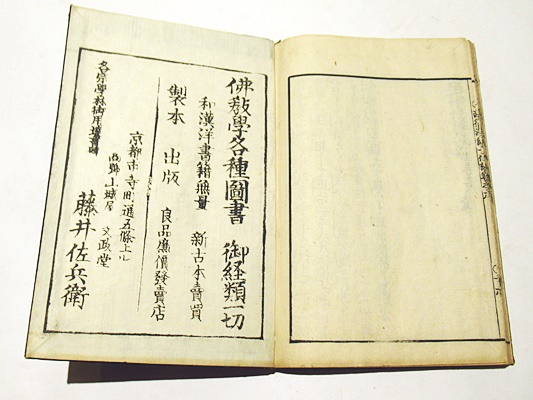 佛教學各種圖書 御経類一切
和漢洋書籍無量 新古本賣買
製本 出版 良品廉價發賣店
京都市寺町通五條上ル
商號山城屋 文政堂
藤井佐兵衛
各宗學林御用書肆